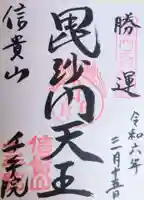 勝運
令和六年
三月十五日
毘沙門天王
信貴山
千手院